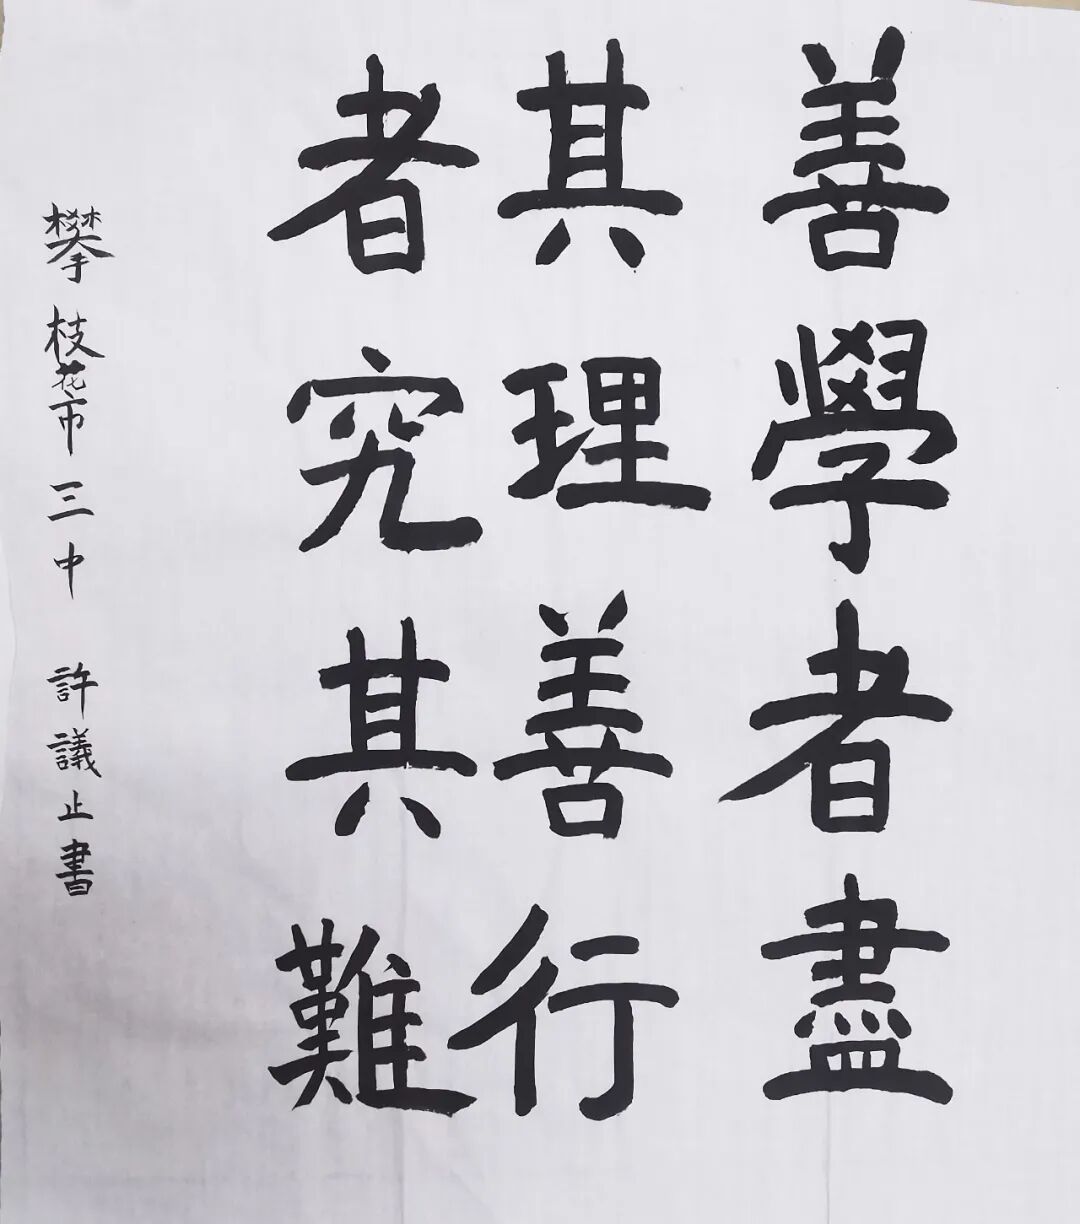 善學者盡
其理善行
者究其難
攀枝花市三中 許議止書